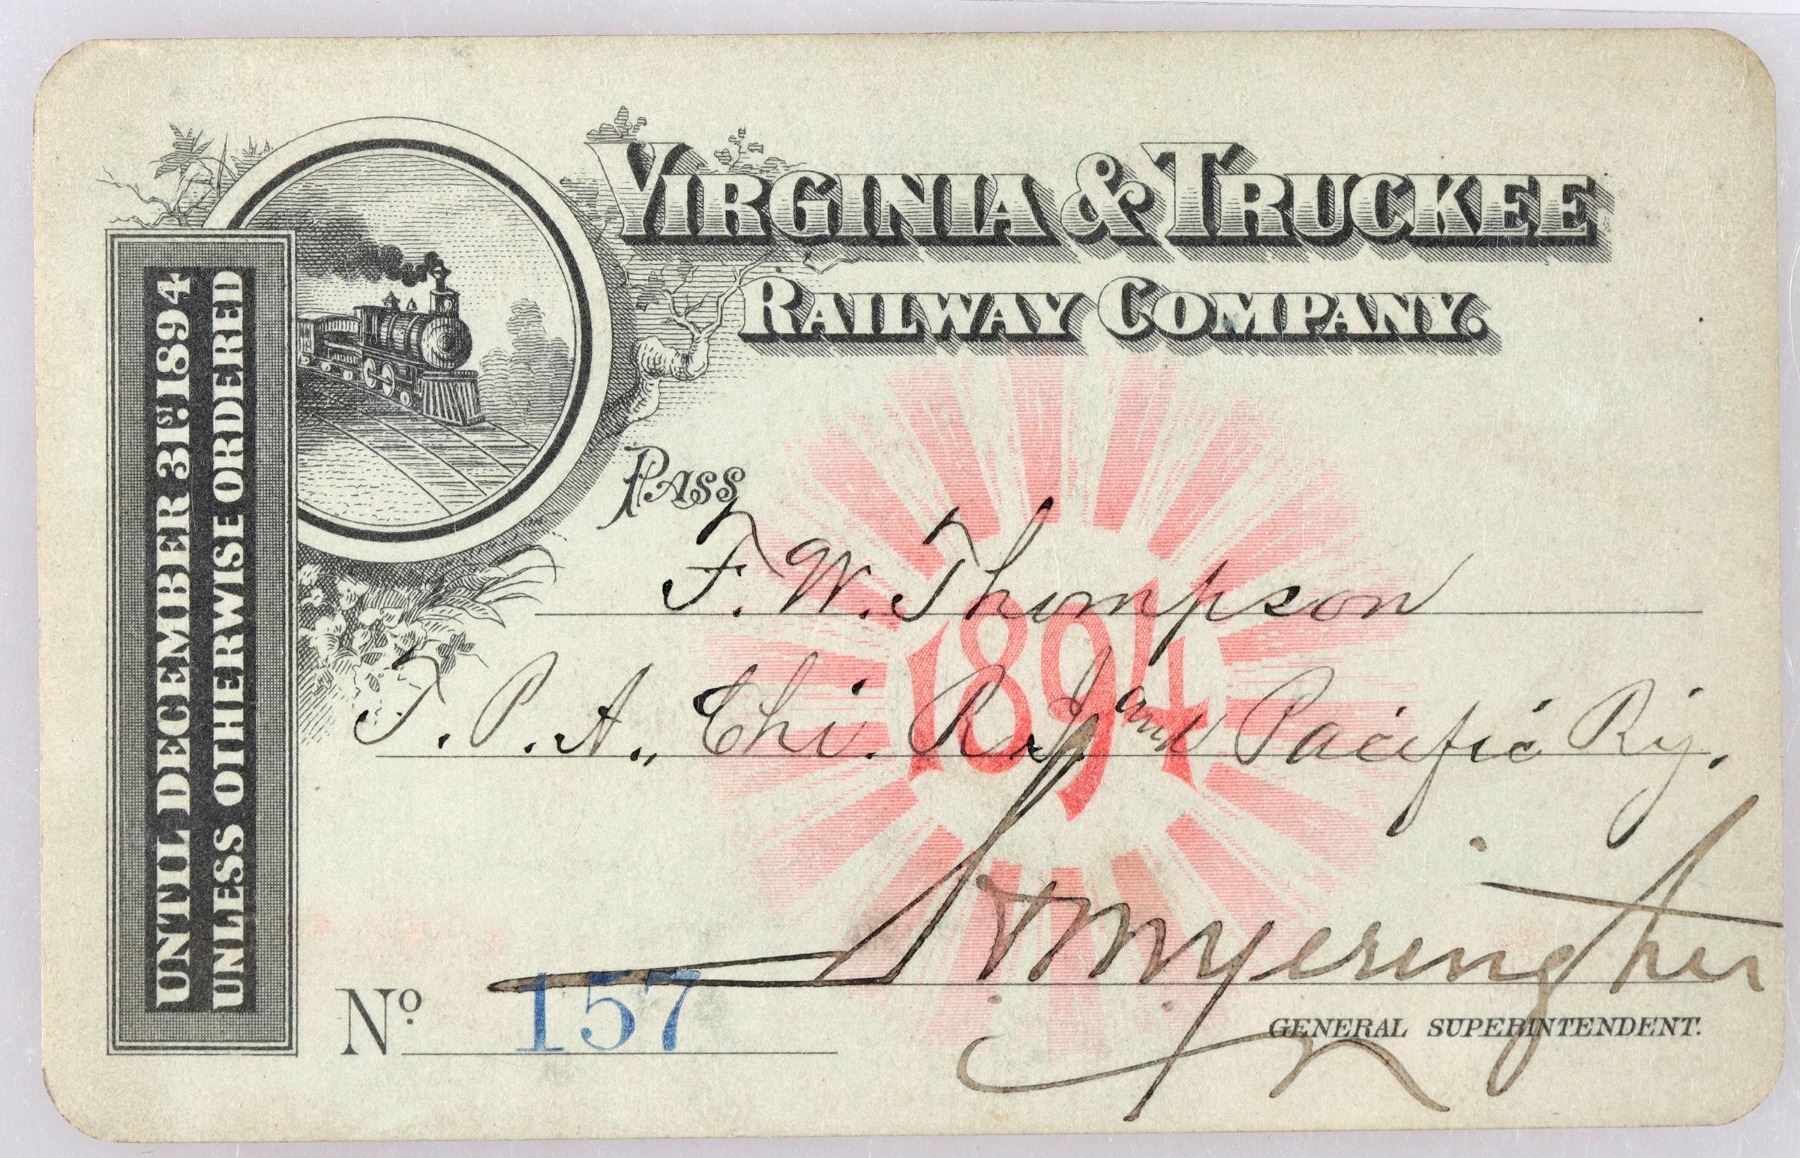 VIRGINIA & TRUCKEE
RAILWAY COMPANY.
UNTIL DECEMBER 31ST. 1894
UNLESS OTHERWISE ORDERED
PASS
F. W. Thompson
1894
T. P. A., Chi. R. I. and Pacific Ry.
No 157
GENERAL SUPERINTENDENT.